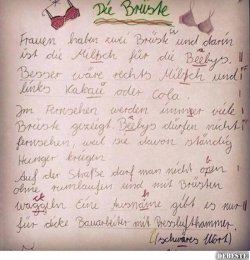 Die Brüste
Frauen haben zwei Brüste und darin
ist die Miltsch für die Beebys.
Besser wäre rechts Miltsch und
links Kakau oder Cola.
Im Fernsehen werden immer viele
Brüste gezeigt. Beebys dürfen nicht
fernsehen, weil sie davon ständig
Hunger kriegen.
Auf der Straße darf man nicht oben
ohne rumlaufen und mit Brüsten
waggeln. Eine Ausnäme gibt es nur
für dicke Bauarbeiter mit Presslufthammer.
(schwäres Wort)
DEBESTE